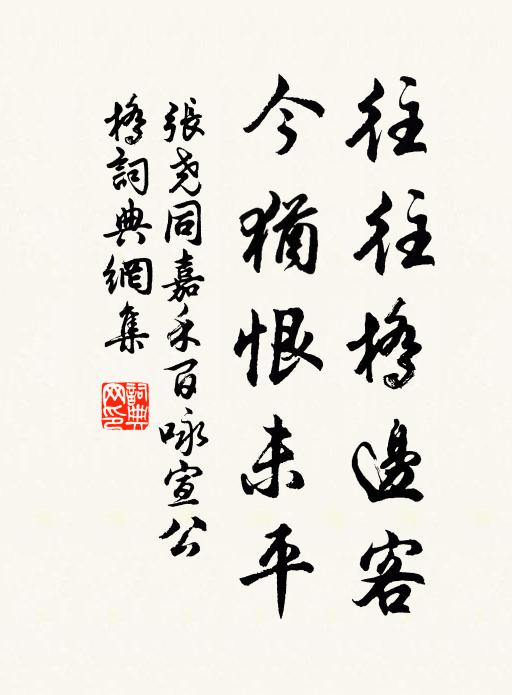 往往橋邊客
今猶恨未平
張堯同嘉禾百咏宣公
橋詞典網集
詞典
网印